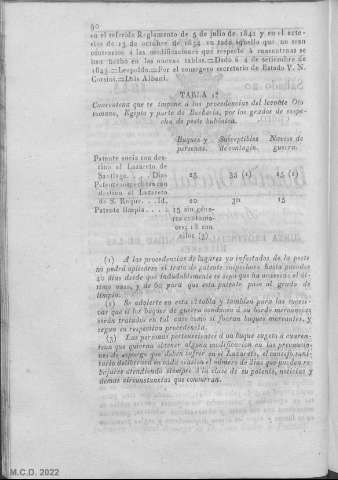 90
en el referido Reglamento de 5 de julio de 1841 y en el
de 13 de octubre de 1834 en todo aquello que no sean
contrarios á las modificaciones que respecto á cuarentenas se
han hecho en las nuevas tablas.=Dado á 4 de setiembre de
1843.=Leopoldo.=Por el consegero secretario de Estado V. N.
Corsini.=Luis Albani.
TABLA 1ª
Cuarentena que se impone á las procedencias del levante Oto
mano, Egipto y parte de Berbería, por los grados de sospe-
cha de peste bubónica.
Buques y Susceptibles Navios de
personas. de contagio. guerra.
Patente sucia con des-
tino al Lazareto de
Santiago. . Dias 25 35 (1) 25 (2)
Patente sospechosa con
destino al Lazareto
de S. Roque. . Id. 20 30 15
Patente limpia. . . . 15 sin géne-
ros contuma-
ces; 18 con
ellos (3)
(1) A las procedencias de lugares ya infestados de la peste
no podrá aplicarse el trato de patente sospechosa hasta pasados
40 dias desde que indudablemente se sepa que ha ocurrido el úl-
timo caso, y de 60 para que esta patente pase al grado de
limpia.
(2) Se advierte en esta 1ª tabla y tambien para las sucesi-
vas que si los buques de guerra condujeren á su bordo mercancías
serán tratados en tal caso como si fueran buques mercantes, y
segun su respectiva procedencia.
(3) Las personas pertenecientes á un buque sugeto á cuaren-
tena que quieran obtener alguna modificacion en las precaucio-
nes de espurgo que deben sufrir en el Lazareto, el consejo sani-
tario deliberará en cada ocasion el número de dias que pueden re-
bajarse atendiendo siempre á la clase de su patente, noticias y
demas circunstancias que concurran.
M.C.D. 2022